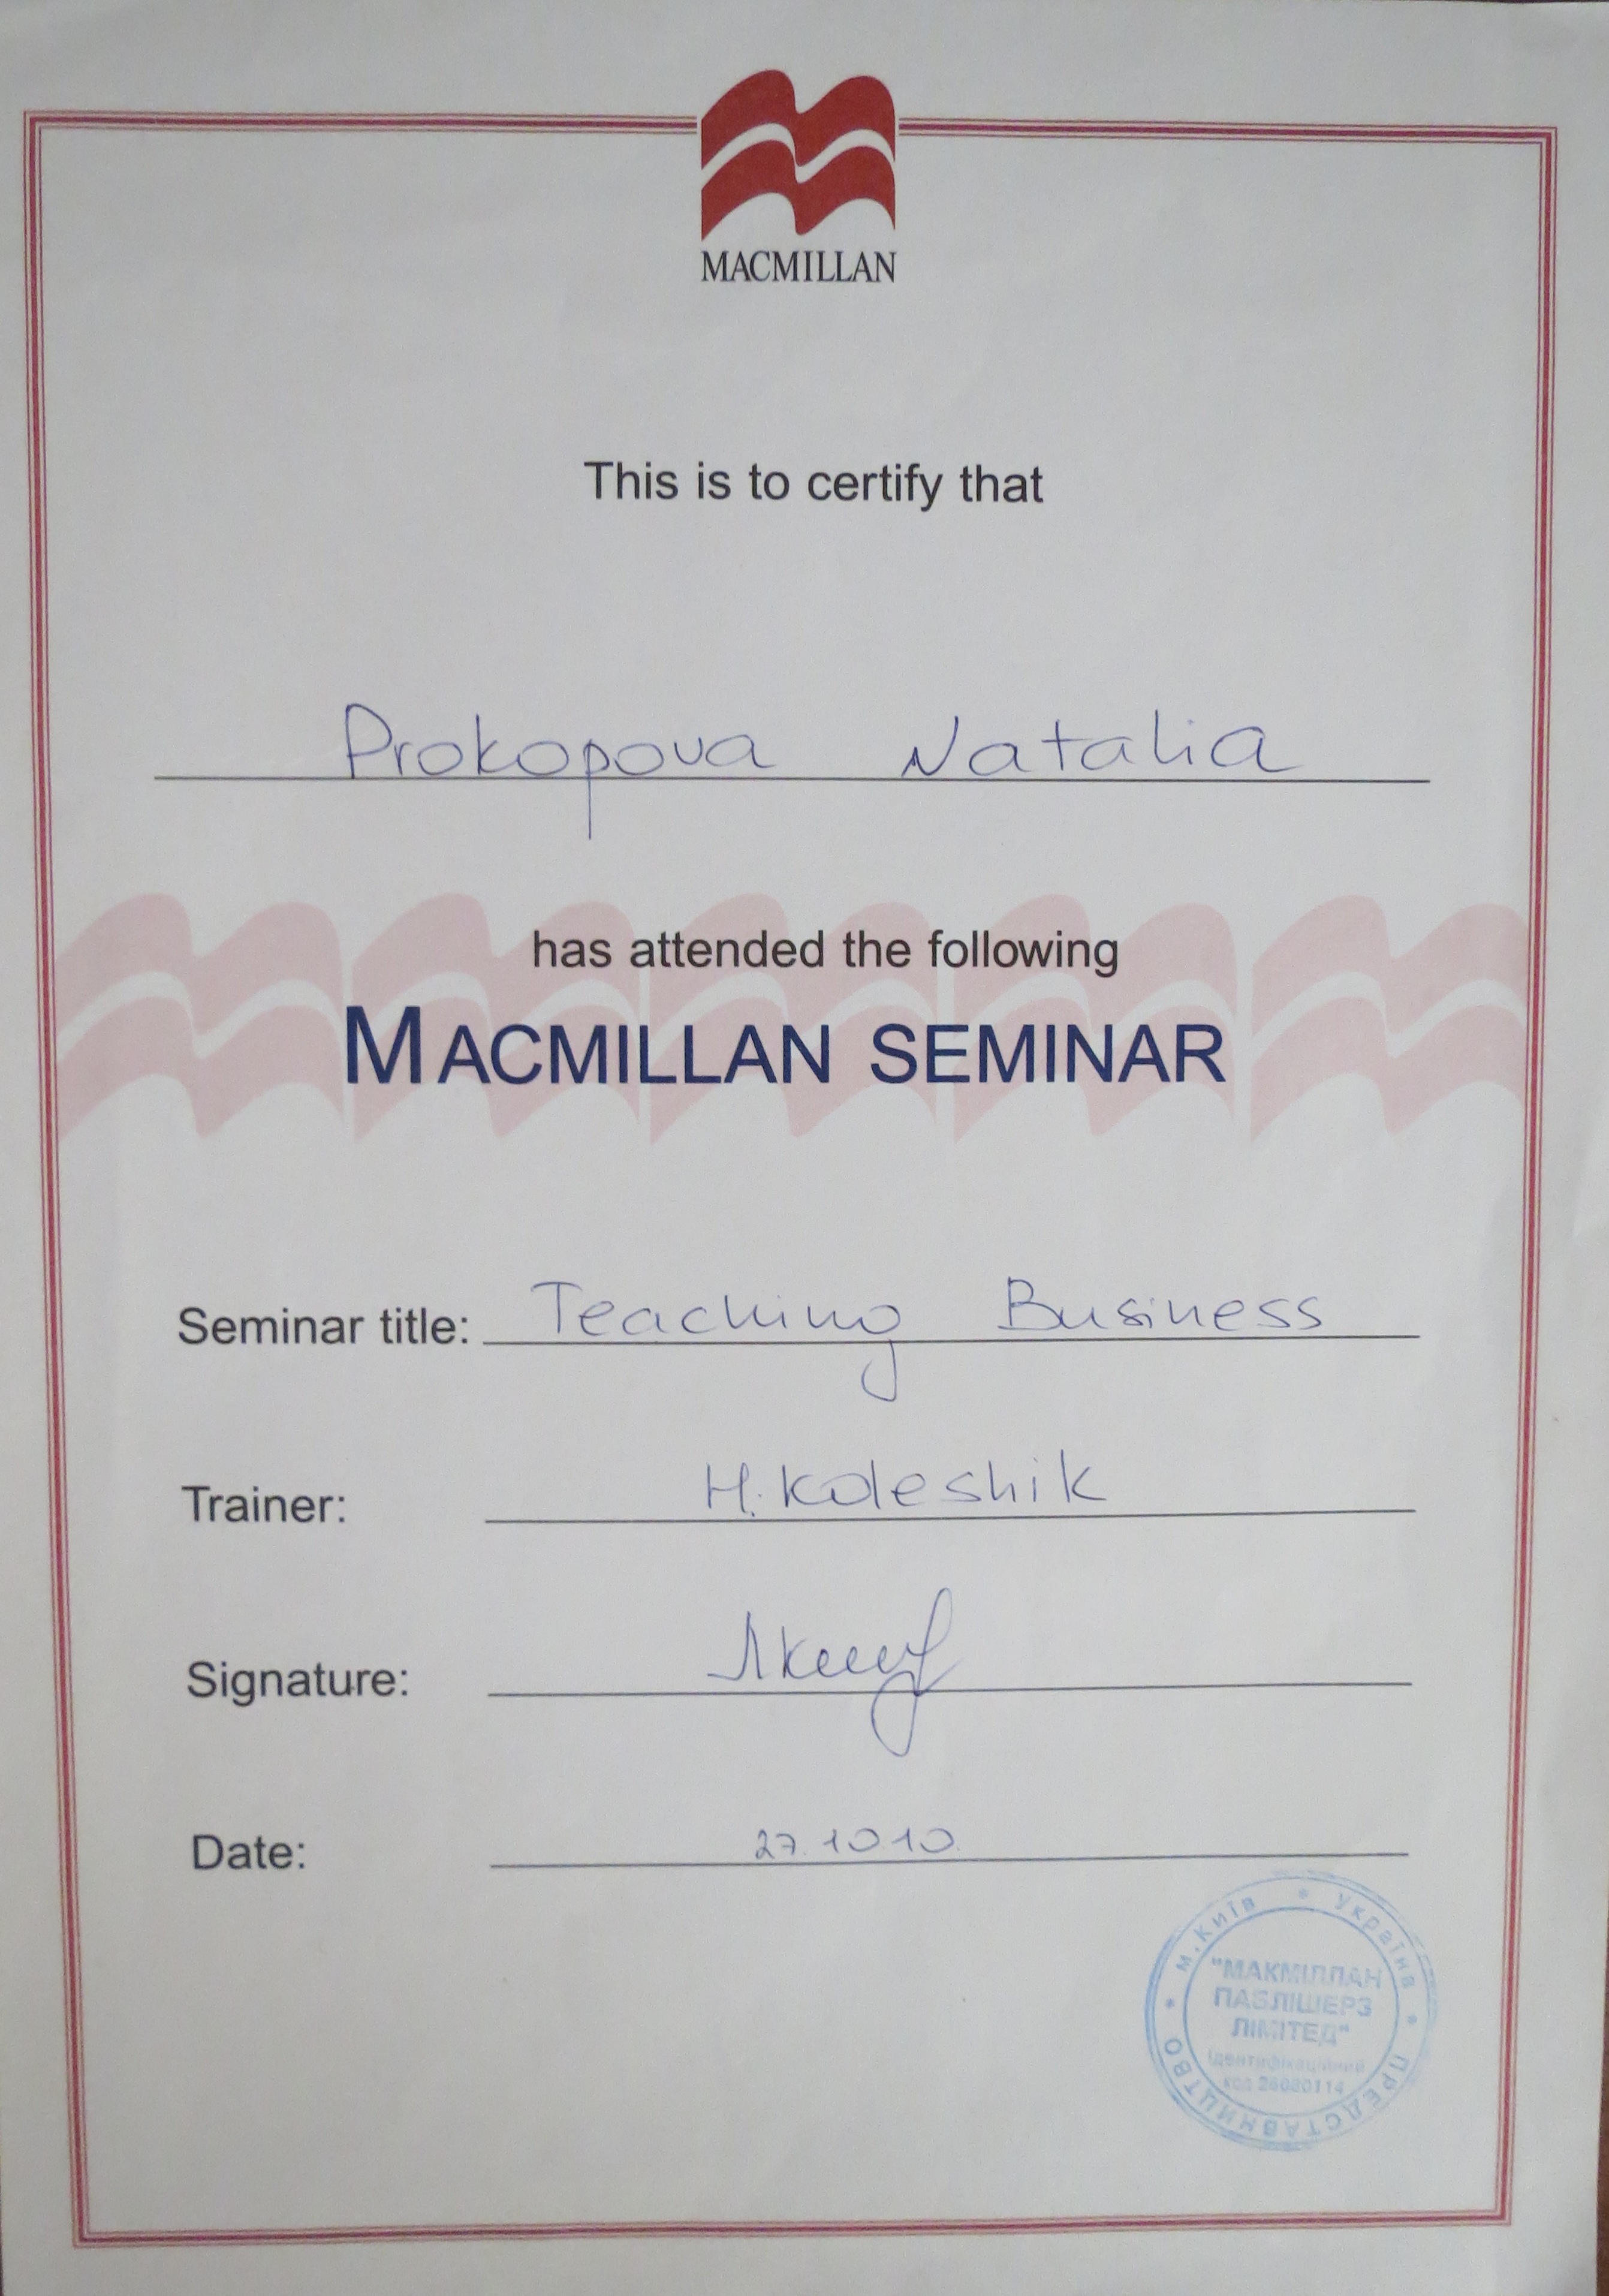 MACMILLAN
This is to certify that
Prokopova Natalia
has attended the following
MACMILLAN SEMINAR
Seminar title: Teaching Business
Trainer: H. Koleshik
Signature:
Date: 27.10.10.
м.Київ * Україна * ПРЕДСТАВНИЦТВО *
"МАКМІЛЛАН
ПАБЛІШЕРЗ
ЛІМІТЕД"
Ідентифікаційний
код 26080114